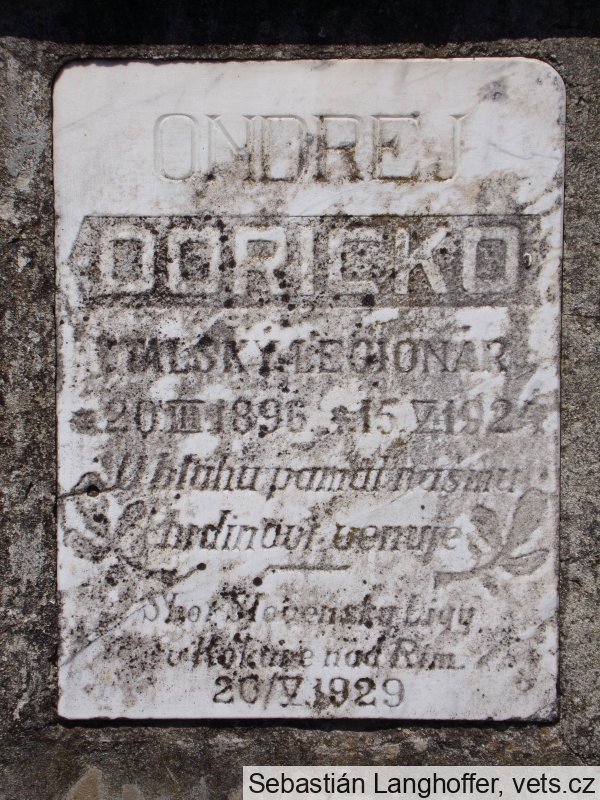 ONDREJ
DORICKO
TALSKY LEGIONAR
*20 III 1896 15 V 192
V hluhu pamäť nášmu
hrdinovi venuje
Sbor Slovenskej Ligy
v Kokave nad Rim.
20/V. 1929
Sebastián Langhoffer, vets.cz